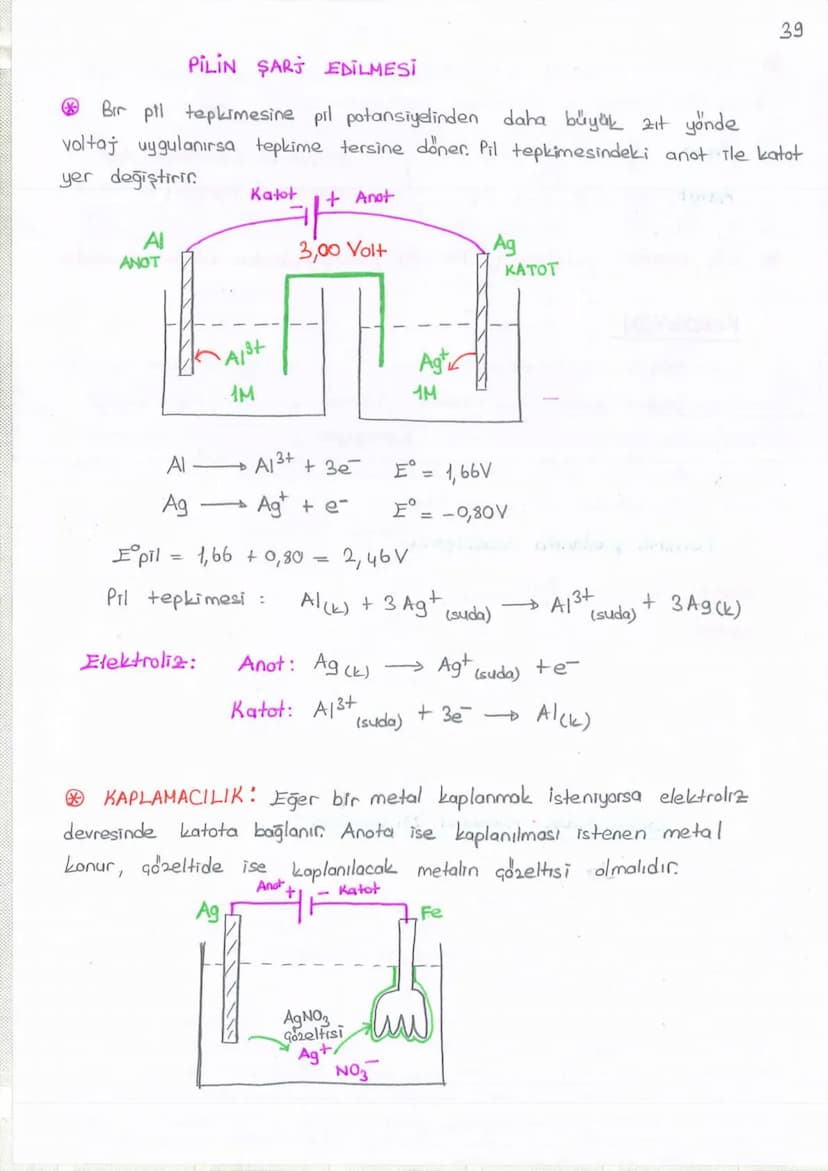 39
PİLİN ŞARJ EDİLMESİ
⊛ Bir pil tepkimesine pil potansiyelinden daha büyük zıt yönde
voltaj uygulanırsa tepkime tersine döner. Pil tepkimesindeki anot ile katot
yer değiştirir.
Katot − + Anot
Al
ANOT
3,00 Volt
Ag
KATOT
Al³⁺
1M
Ag⁺
1M
Al → Al³⁺ + 3e⁻ E° = 1,66V
Ag → Ag⁺ + e⁻ E° = −0,80V
E°pil = 1,66 + 0,80 = 2,46V
Pil tepkimesi : Al(k) + 3Ag⁺(suda) → Al³⁺(suda) + 3Ag(k)
Elektroliz: Anot: Ag(k) → Ag⁺(suda) + e⁻
Katot: Al³⁺(suda) + 3e⁻ → Al(k)
⊛ KAPLAMACILIK: Eğer bir metal kaplanmak isteniyorsa elektroliz
devresinde katota bağlanır. Anota ise kaplanılması istenen metal
konur, çözeltide ise kaplanılacak metalin çözeltisi olmalıdır.
Anot + − Katot
Ag
Fe
AgNO₃
çözeltisi
Ag⁺
NO₃⁻